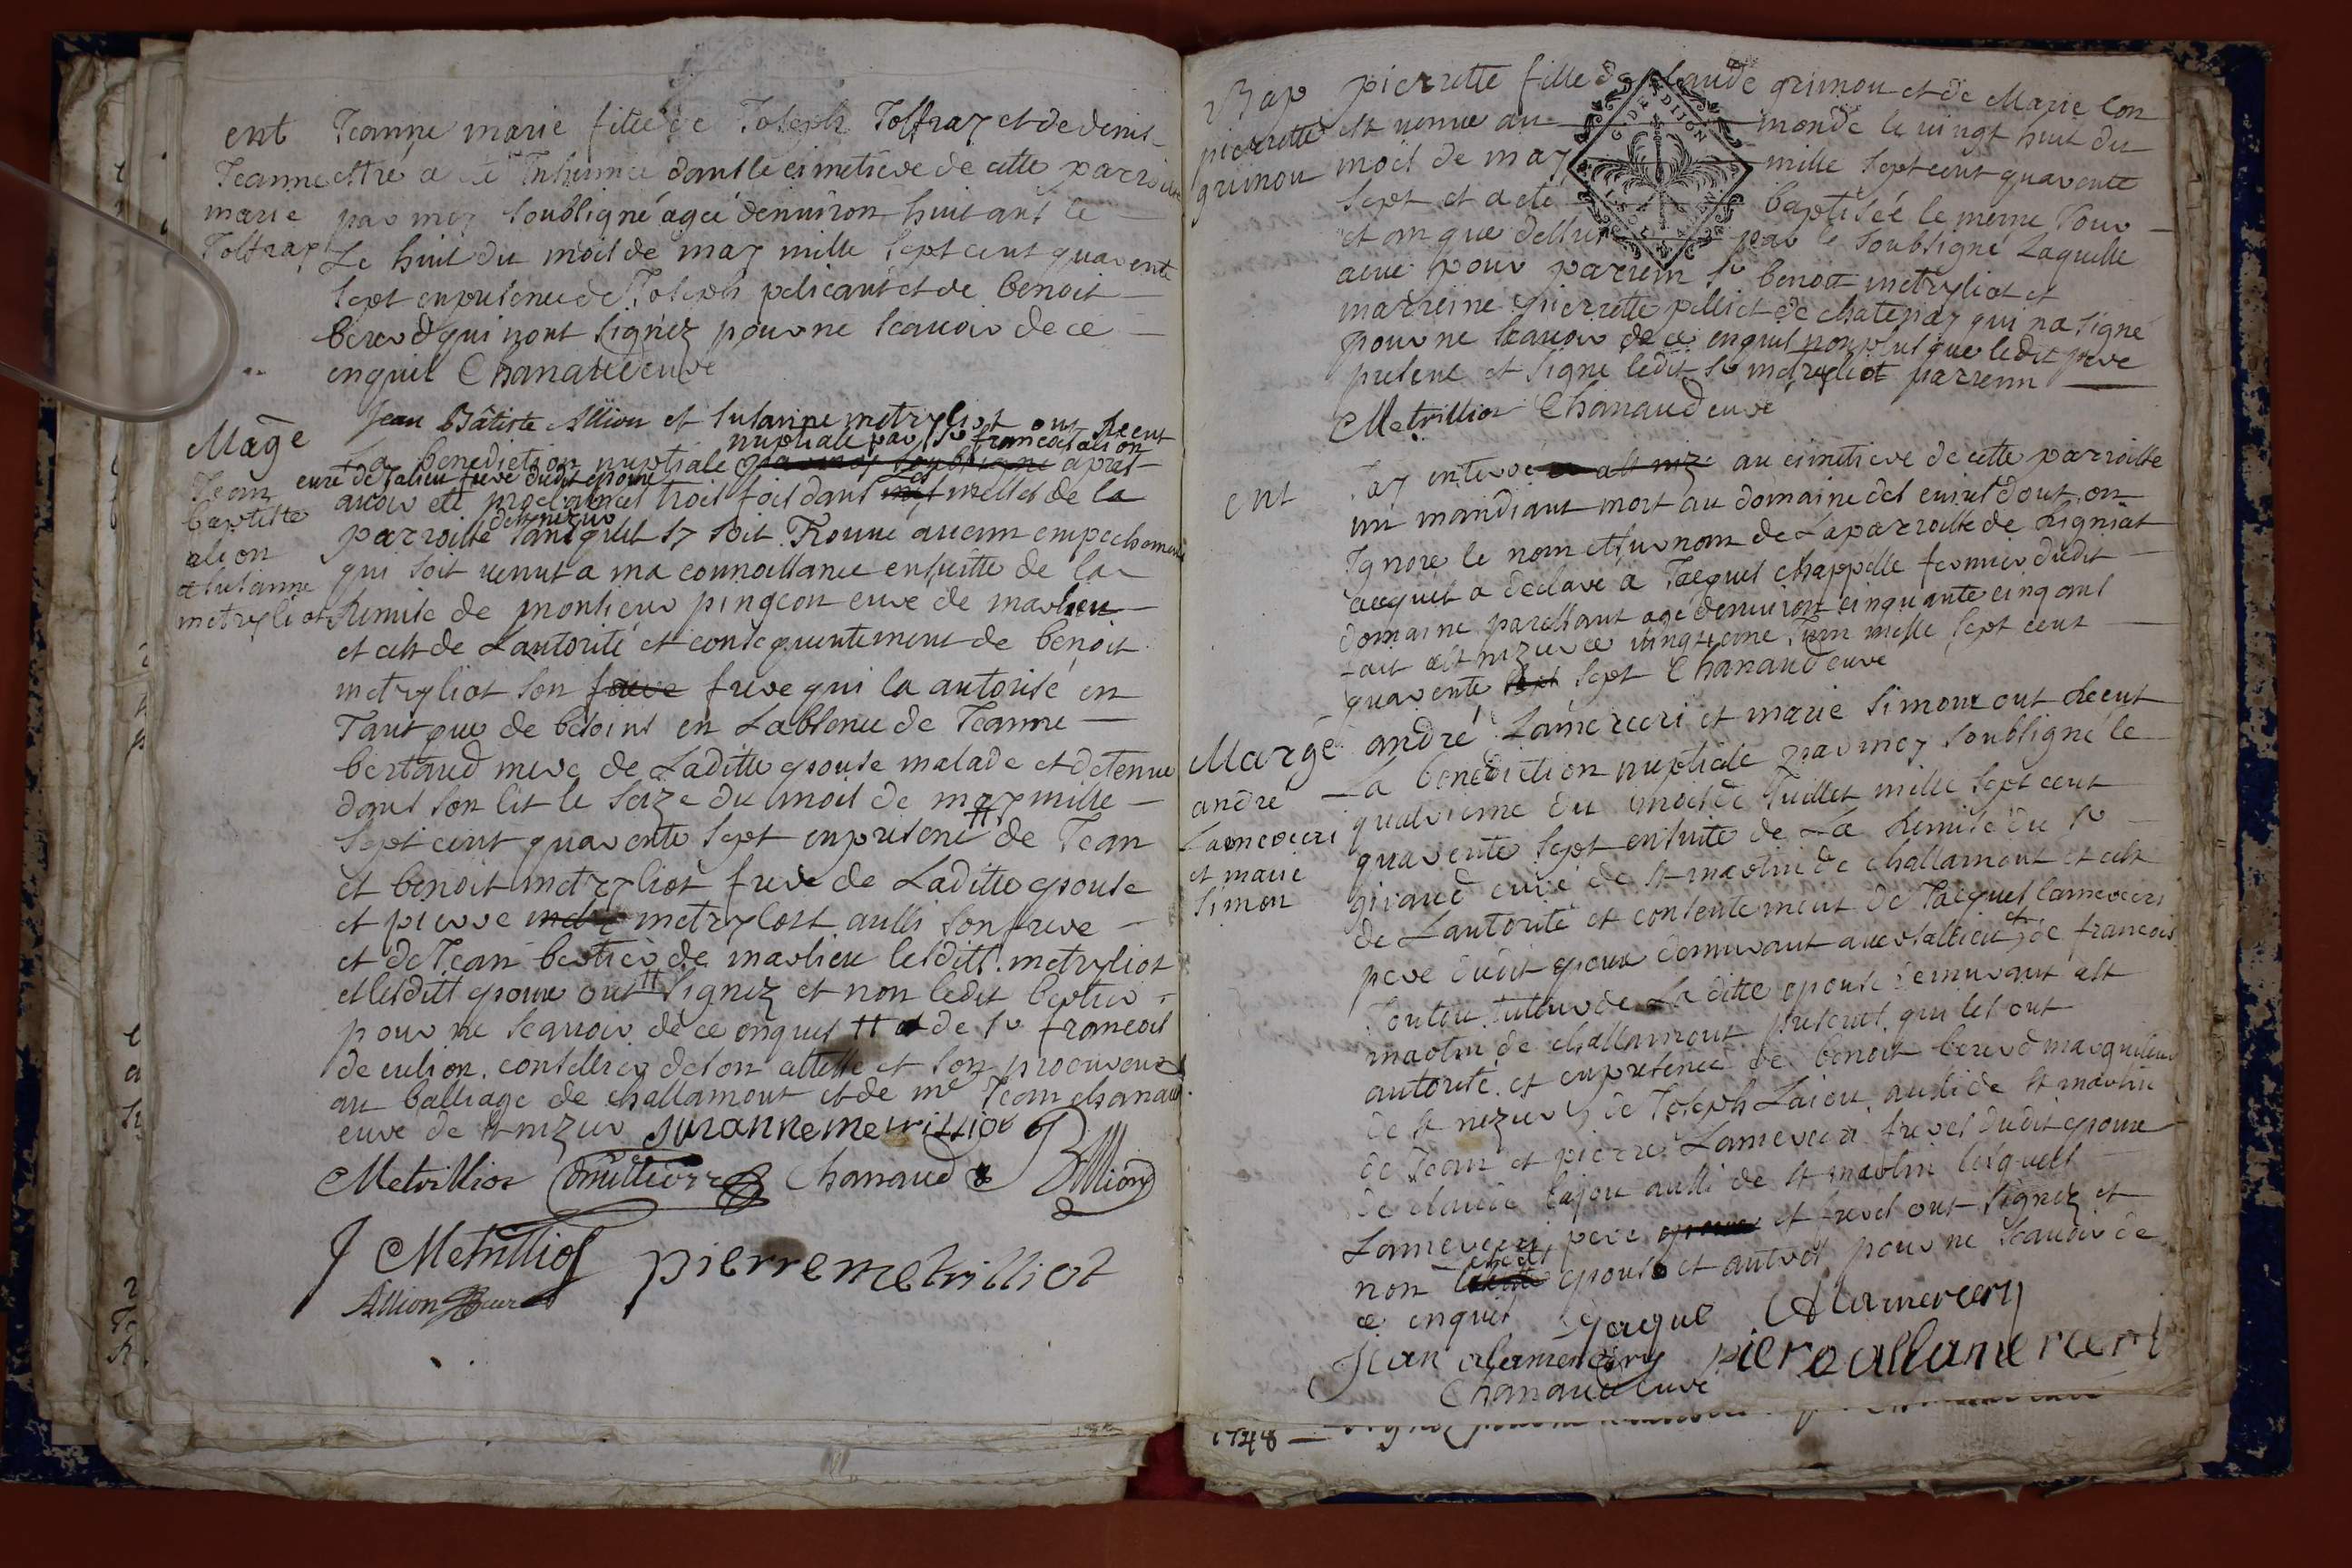 ent
Jeanne
marie
Joffray
Jeanne marie fille de Joseph Joffray et de denis
ettre a été Inhumée dans le cimetiere de cette parroisse
par moy soubsigné agée denuiron huit ans le
Le huit du mois de may mille sept cent quarente
sept en presence de Joseph pelicant et de benoit
bererd qui nont signéz pour ne scauoir de ce
enquis Chanaud curé
Mage
Jean
baptiste
alion
et susanne
metrylliot
Jean Bâtiste Allion et susanne metrylliot ont Receut
nuptiale par Sr francois alion
La benediction nuptiale par moy soubsigné apres
curé de Jalieu frere dudit epoux
auoir eté proclamées trois fois dans les messes de la
de st nizier
parroisse sans quil sy soit Trouué aucun empechement
qui soit venut a ma connoissance ensuitte de la
Remise de monsieur pingeon curé de marlieu
et cest de Lautorité et consequentement de benoit
metryliot son frere frere qui la autorisé en
Tant que de besoins en Labsence de Jeanne
bertaud mere de Laditte epouse malade et detenue
dans son lit le seize du mois de may mille
sept cent quarente sept en presence # de Jean
et benoit metrylliot frere de Laditte epouse
et pierre metr metryliost aussi son frere
et de Jean bertier de marlieu lesditts metryliot
et lesditt epoux ont # signéz et non ledit bertier
pour ne scauoir de ce enquis # et de Sr francois
de culion conseiller de son altesse et son procureur
au balliage de challamont et de me Jean chanaud
curé de st nizier suzanne metrilliot
Metrillior Chanaud Bllion
J Metrilliot pierre metrilliot
Allion curé
Bap
pierrette
grimou
pierrette fille de Claude grimou et de Marie Con
G. DE DIJON
est venue au monde le vingt huit du
mois de may mille sept cent quarente
sept et a eté baptisée le meme Jour
et an que dessus par le soubsigné Laquelle
a eue pour parrein Sr benoit metryliot et
marreine pierrette pelliet de chatenay qui na signé
pour ne scauoir de ce enquis non plus que ledit pere
presens et signé ledit Sr metryliot parrein
Metrillior Chanaud curé
ent
Jay enterré a st niz au cimetiere de cette parroisse
un mandiant mort au domaine des cuires dont on
Ignore le nom et surnom de La parroisse de Ligniat
acequil a declaré a Jacques chappelle fermier dudit
domaine paressant agé denuiron cinquante cinq ans
fait a st nizier ce vingtieme Juin mille sept cent
quarente sept sept Chanaud curé
Marge
andré
Lamereri
et marie
simon
andré Lamereeri et marie simon ont Receut
La benediction nuptiale par moy soubsigné le
quatrieme du mois de Juillet mille sept cent
quarente sept ensuite de La Remise du Sr
giraud curé de st martin de challamont et cest
de Lautorité et consentement de Jacques lamereeri
pere dudit epoux demurant a uersallieu et de francois
Joutou Tuteur de La ditte epouse demurant a st
martin de challamont presents qui les ont
autorisé et en presence de benoit bererd marguilier
de st nizier et de Joseph Laiou aussi de st martin
de Jean et pierre Lamereeri freres dudit epoux
de claude lajou aussi de st martin lesquels
Lamereeri pere epoux et freres ont signéz et
non laditte epouse et autres pour ne scauoir de
ce enquis Jaque Alamercery
Jean alamercery piere allamercert
Chanaud curé
1748